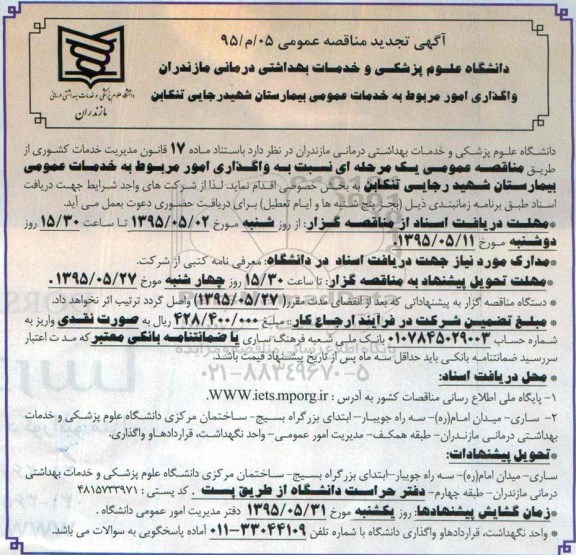 آگهی تجدید مناقصه عمومی ۰۵/م/۹۵
دانشگاه علوم پزشکی و خدمات بهداشتی درمانی مازندران
واگذاری امور مربوط به خدمات عمومی بیمارستان شهیدرجایی تنکابن
دانشگاه علوم پزشکی و خدمات بهداشتی درمانی
مازندران
دانشگاه علوم پزشکی و خدمات بهداشتی درمانی مازندران در نظر دارد باستناد ماده ۱۷ قانون مدیریت خدمات کشوری از
طریق مناقصه عمومی یک مرحله ای نسبت به واگذاری امور مربوط به خدمات عمومی
بیمارستان شهید رجایی تنکابن به بخش خصوصی اقدام نماید: لذا از شرکت های واجد شرایط جهت دریافت
اسناد طبق برنامه زمانبندی ذیل (بجز پنج شنبه ها و ایام تعطیل) برای دریافت حضوری دعوت بعمل می آید.
*مهلت دریافت اسناد از مناقصه گزار: از روز شنبه مورخ ۱۳۹۵/۰۵/۰۲ تا ساعت ۱۵/۳۰ روز
دوشنبه مورخ ۱۳۹۵/۰۵/۱۱.
*مدارک مورد نیاز جهت دریافت اسناد در دانشگاه: معرفی نامه کتبی از شرکت.
*مهلت تحویل پیشنهاد به مناقصه گزار: تا ساعت ۱۵/۳۰ روز چهار شنبه مورخ ۱۳۹۵/۰۵/۲۷.
* دستگاه مناقصه گزار به پیشنهاداتی که بعد از انقضای ساعت مقرر(۱۳۹۵/۰۵/۲۷) واصل گردد ترتیب اثر نخواهد داد.
* مبلغ تضمین شرکت در فرآیند ارجاع کار: مبلغ ۴۲۸/۴۰۰/۰۰۰ ریال به صورت نقدی واریز به
شماره حساب ۰۱۰۷۸۴۵۰۲۹۰۰۳ بانک ملی شعبه فرهنگ ساری یا ضمانتنامه بانکی معتبر که مدت اعتبار
سررسید ضمانتنامه بانکی باید حداقل سه ماه پس از تاریخ پیشنهاد قیمت باشد.
۰۲۱-۸۸۳۴۹۶۷۰-۵
* محل دریافت اسناد:
۱- پایگاه ملی اطلاع رسانی مناقصات کشور به آدرس : WWW.iets.mporg.ir
۲- ساری- میدان امام(ره)- سه راه جویبار- ابتدای بزرگراه بسیج- ساختمان مرکزی دانشگاه علوم پزشکی و خدمات
بهداشتی درمانی مازندران- طبقه همکف- مدیریت امور عمومی- واحد نگهداشت، قراردادها و واگذاری.
*تحویل پیشنهادات:
ساری- میدان امام(ره)- سه راه جویبار-ابتدای بزرگراه بسیج- ساختمان مرکزی دانشگاه علوم پزشکی و خدمات بهداشتی
درمانی مازندران- طبقه چهارم- دفتر حراست دانشگاه از طریق پست . کد پستی : ۴۸۱۵۷۳۳۹۷۱
*زمان گشایش پیشنهادها: روز یکشنبه مورخ ۹۵/۰۵/۳۱ دفتر مدیریت امور عمومی دانشگاه .
* واحد نگهداشت، قراردادها و واگذاری دانشگاه با شماره تلفن ۳۳۰۴۴۱۰۹-۰۱۱ آماده پاسخگویی به سوالات می باشد.